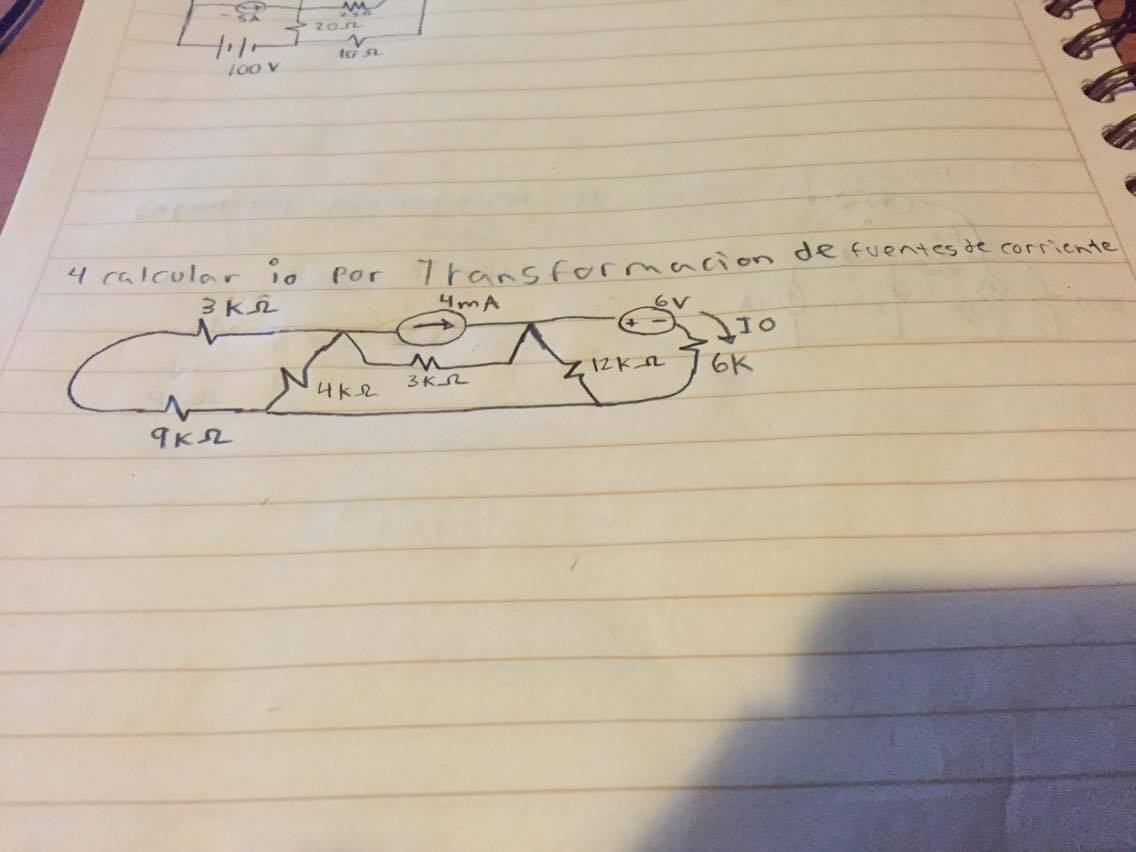 5A
20Ω
10Ω
100V
4 calcular io por Transformacion de fuentes de corriente
3KΩ
4mA
6V
IO
4KΩ
3KΩ
12KΩ
6K
9KΩ